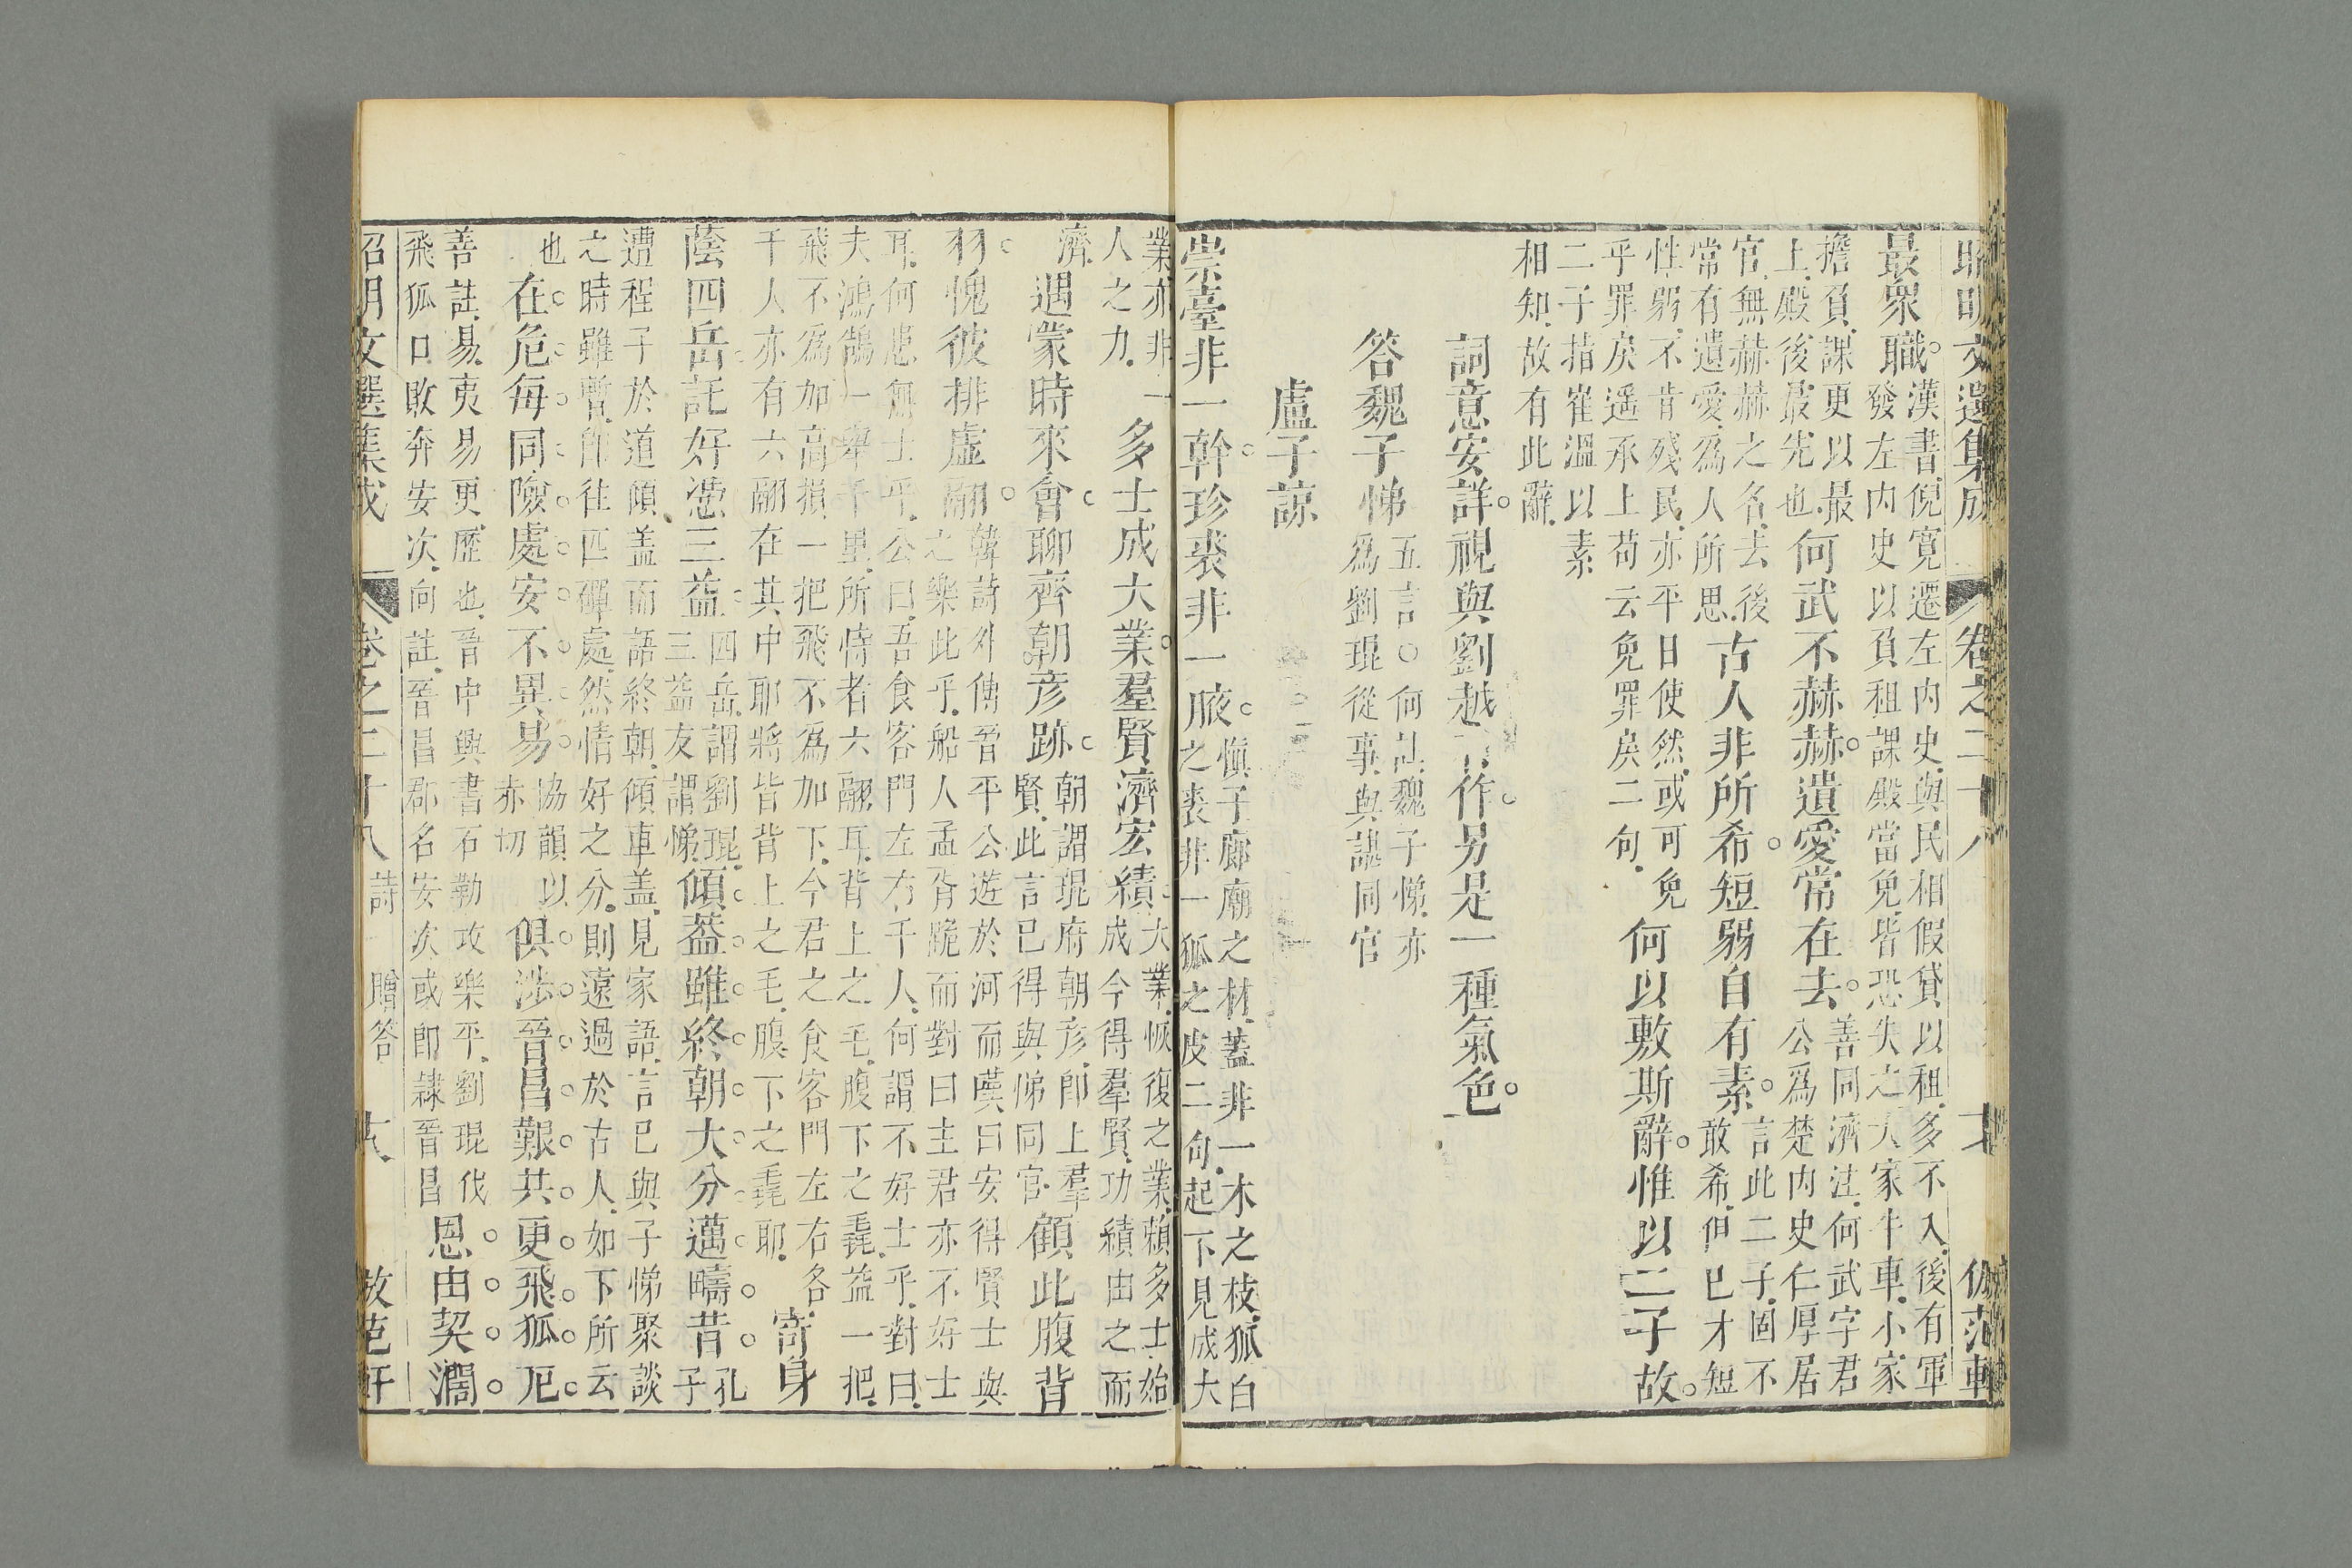 昭明文選集成 卷之二十八
最衆職漢書倪寛遷左内史與民相假貸以租多不入後有軍
發左内史以負租課殿當免皆恐失之大家牛車小家
擔負課更以最
上殿後最先也何武不赫赫遺愛常在去善同濟注何武字君
公爲楚内史仁厚居
官無赫赫之名去後
常有遺愛爲人所思古人非所希短弱自有素言此二子固不
敢希但已才短
性弱不肯殘民亦平日使然或可免
乎罪戾遥承上苟云免罪戾二句何以敷斯辭惟以二子故
二子指崔溫以素
相知故有此辭
詞意安詳視與劉越石作另是一種氣色
答魏子悌五言○何註魏子悌亦
爲劉琨從事與諶同官
盧子諒
崇臺非一幹珍裘非一腋愼子廊廟之材蓋非一木之枝狐白
之裘非一狐之皮二句起下見成大
業亦非一
人之力多士成大業羣賢濟宏績大業恢復之業頼多士始
成今得羣賢功績由之而
濟遇蒙時來會聊齊朝彦跡朝謂琨府朝彦即上羣
賢此言已得與悌同官顧此腹背
羽愧彼排虛翮韓詩外傳晉平公遊於河而嘆曰安得賢士與
之樂此乎船人孟胥跪而對曰主君亦不好士
耳何患無士乎公曰吾食客門左右千人何謂不好士乎對曰
夫鴻鵠一舉千里所恃者六翮耳背上之毛腹下之毳益一把
飛不爲加高損一把飛不爲加下今君之食客門左右各
千人亦有六翮在其中耶將皆背上之毛腹下之毳耶寄身
蔭四岳託好憑三益四岳謂劉琨
三益友謂悌傾蓋雖終朝大分邁疇昔孔
子
遭程子於道傾盖而語終朝傾車盖見家語言已與子悌聚談
之時雖暫即往匹磾處然情好之分則遠過於古人如下所云
也在危每同險處安不異易協韻以
赤切俱涉晉昌艱共更飛狐厄
善註易夷易更歷也晉中興書石勒攻樂平劉琨伐
飛狐口敗奔安次向註晉昌郡名安次或即隷晉昌恩由契濶
昭明文選集成 卷之二十八 詩 贈答